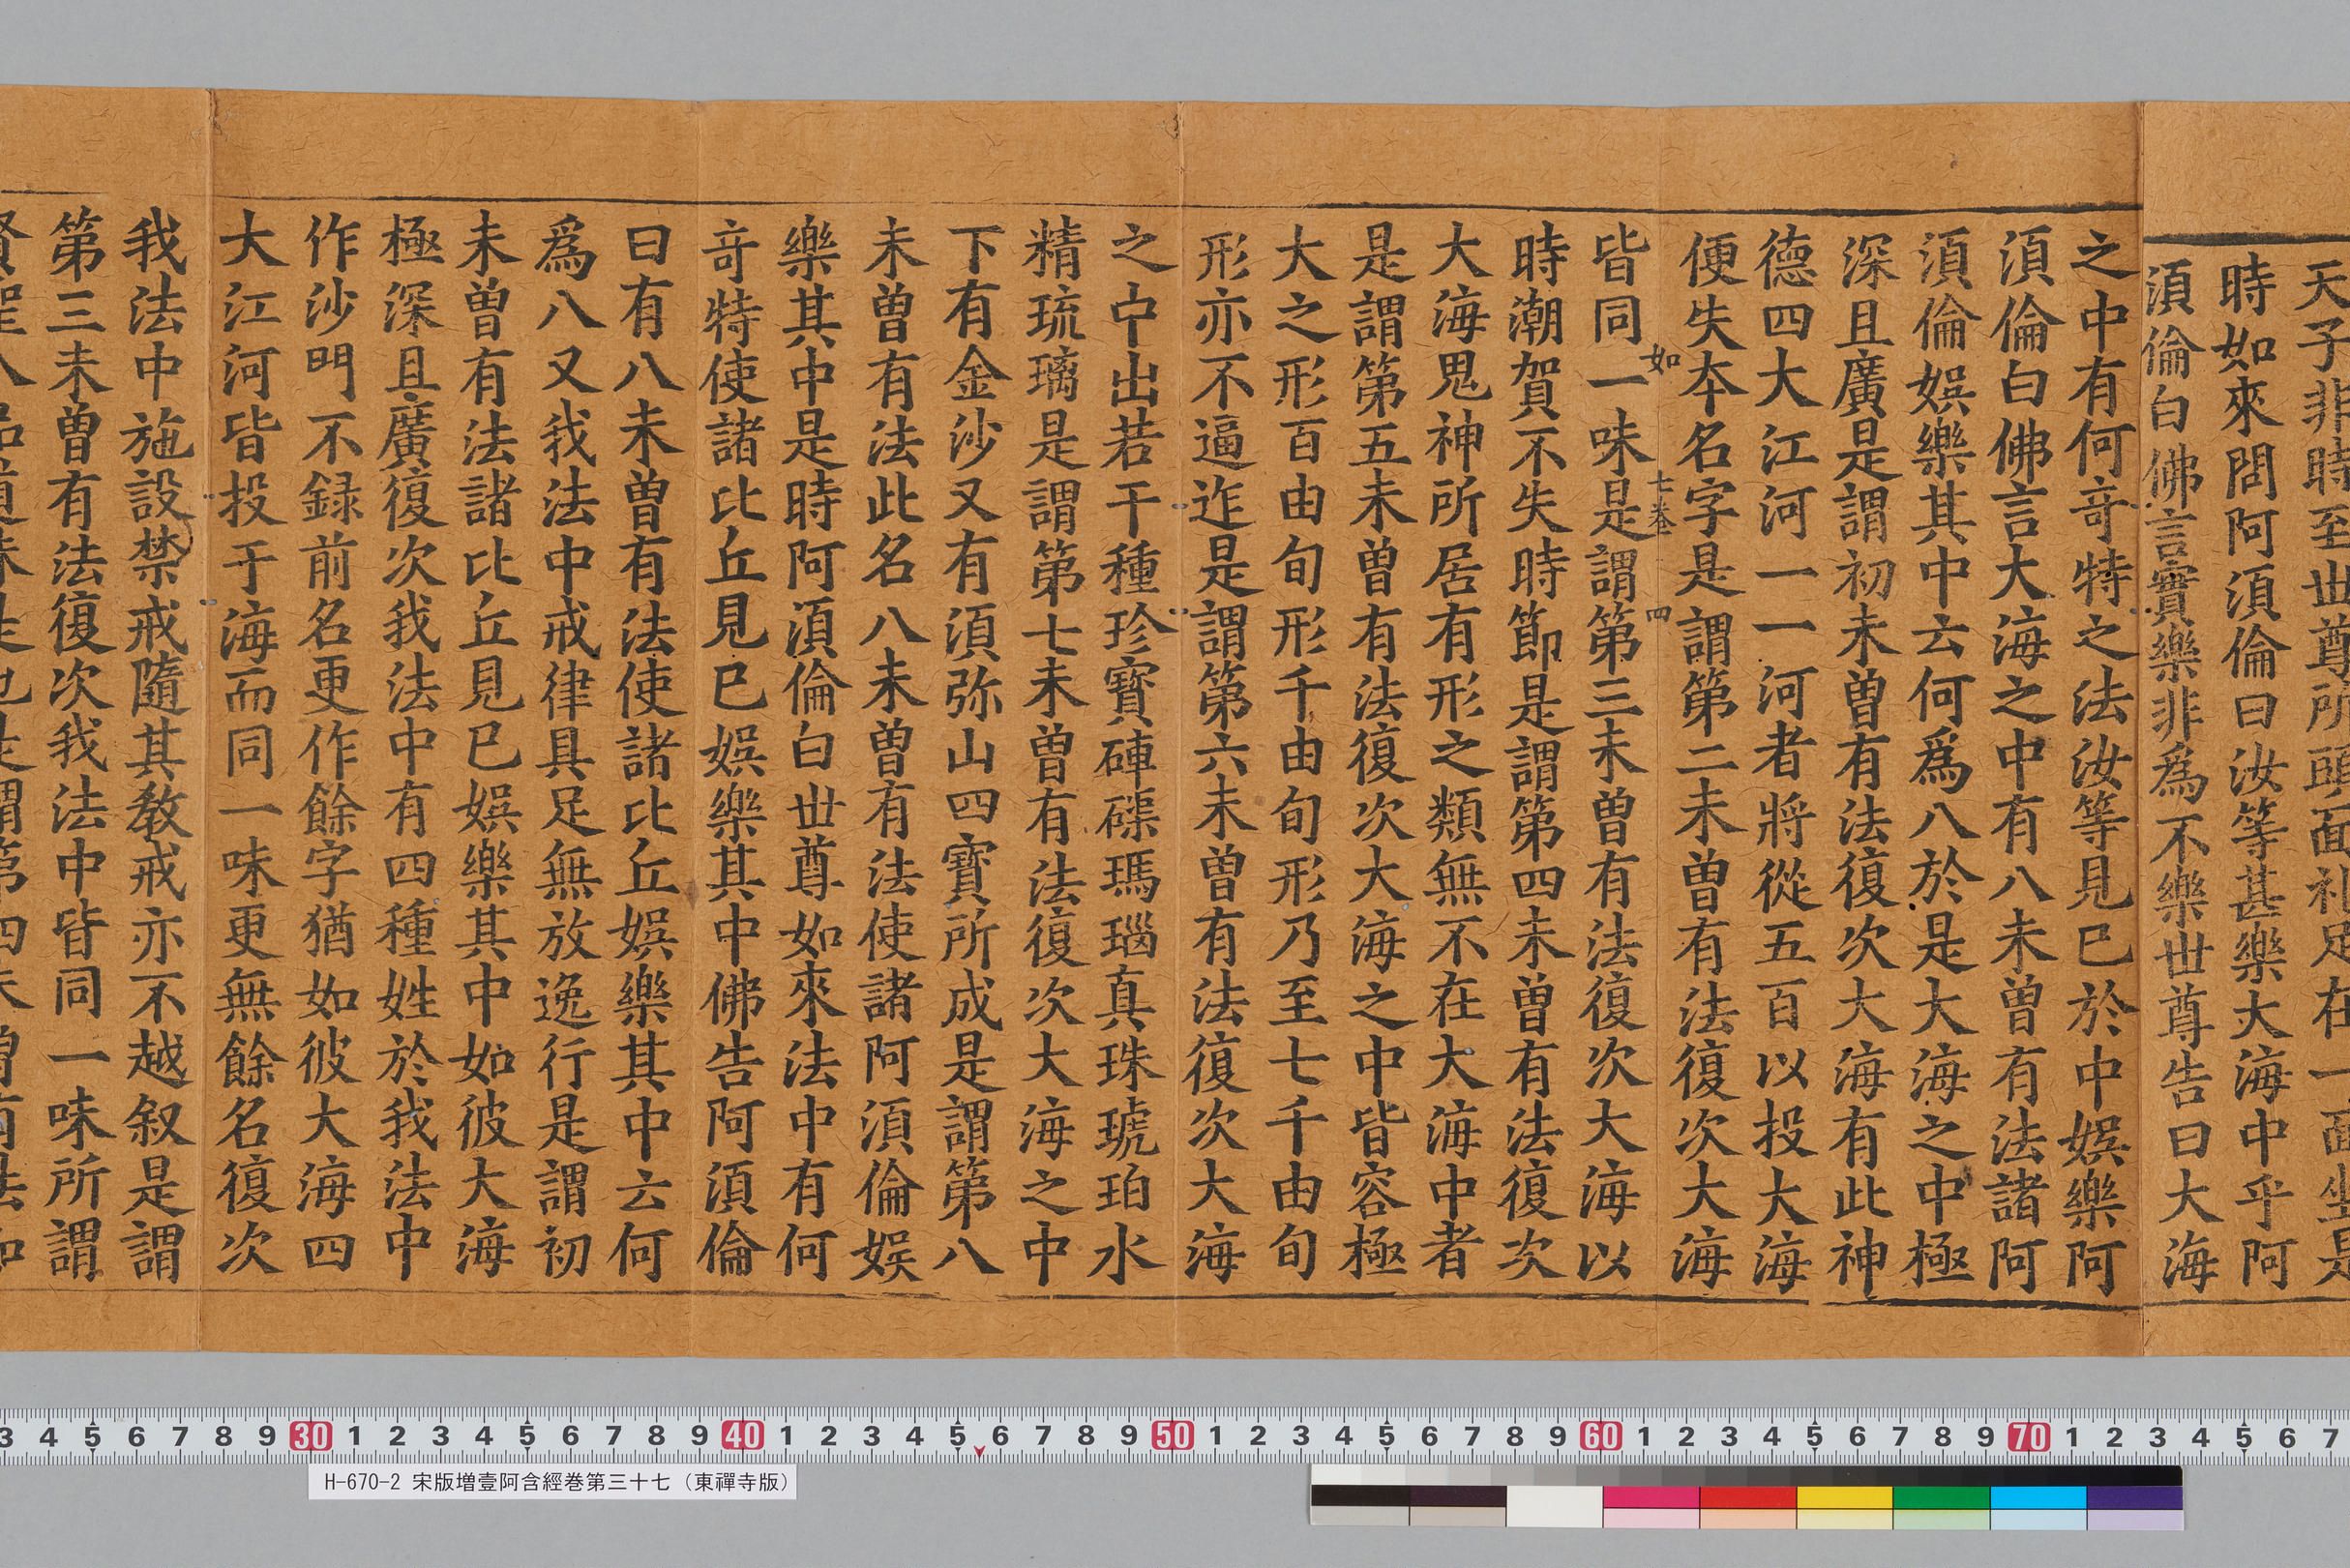 天子非時至世尊所頭面礼足在一面坐是
時如來問阿須倫曰汝等甚樂大海中乎阿
須倫白佛言實樂非為不樂世尊告曰大海
之中有何竒特之法汝等見已於中娯樂阿
須倫白佛言大海之中有八未曽有法諸阿
須倫娯樂其中云何爲八於是大海之中極
深且廣是謂初未曽有法復次大海有此神
德四大江河一一河者將從五百以投大海
便失夲名字是謂第二未曽有法復次大海
如 七卷 四
皆同一味是謂第三未曽有法復次大海以
時潮賀不失時節是謂第四未曽有法復次
大海鬼神所居有形之類無不在大海中者
是謂第五未曽有法復次大海之中皆容極
大之形百由旬形千由旬形乃至七千由旬
形亦不逼迮是謂第六未曽有法復次大海
之中出若干種珍寶硨磲瑪瑙真珠琥珀水
精琉璃是謂第七未曽有法復次大海之中
下有金沙又有須弥山四寶所成是謂第八
未曽有法此名八未曽有法使諸阿須倫娯
樂其中是時阿須倫白世尊如來法中有何
竒特使諸比丘見已娯樂其中佛告阿須倫
曰有八未曽有法使諸比丘娯樂其中云何
爲八又我法中戒律具足無放逸行是謂初
未曽有法諸比丘見已娯樂其中如彼大海
極深且廣復次我法中有四種姓於我法中
作沙門不録前名更作餘字猶如彼大海四
大江河皆投于海而同一味更無餘名復次
我法中施設禁戒隨其教戒亦不越叙是謂
第三未曽有法復次我法中皆同一味所謂
賢聖八品道味是也是謂第四未曽有法如
3 4 5 6 7 8 9 30 1 2 3 4 5 6 7 8 9 40 1 2 3 4 5 6 7 8 9 50 1 2 3 4 5 6 7 8 9 60 1 2 3 4 5 6 7 8 9 70 1 2 3 4 5 6 7
H-670-2 宋版増壹阿含經巻第三十七（東禪寺版）